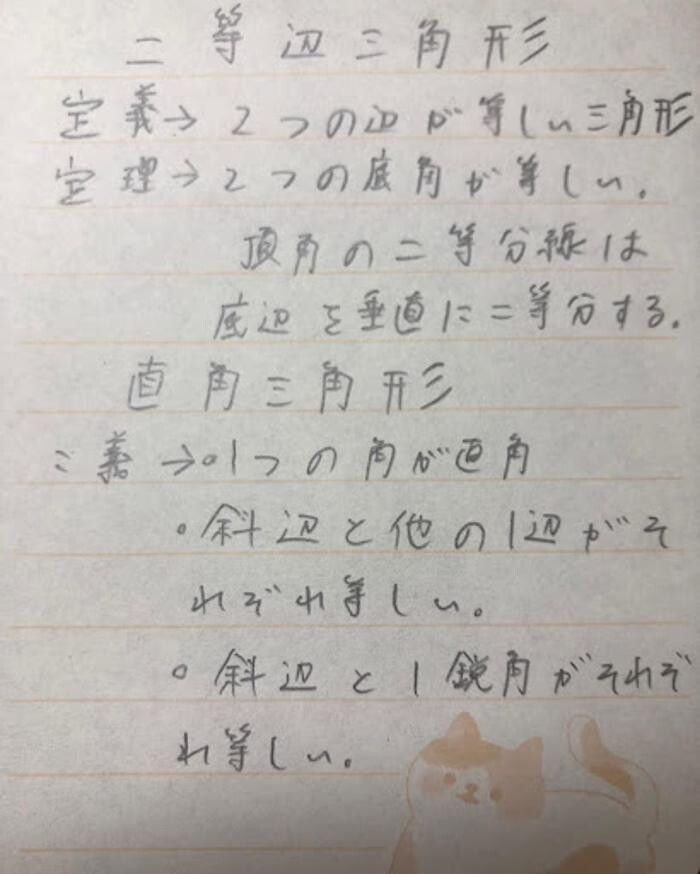 二等辺三角形
定義→2つの辺が等しい三角形
定理→2つの底角が等しい.
頂角の二等分線は
底辺を垂直に二等分する.
直角三角形
義→•1つの角が直角
•斜辺と他の1辺がそ
れぞれ等しい。
•斜辺と1鋭角がそれぞ
れ等しい。